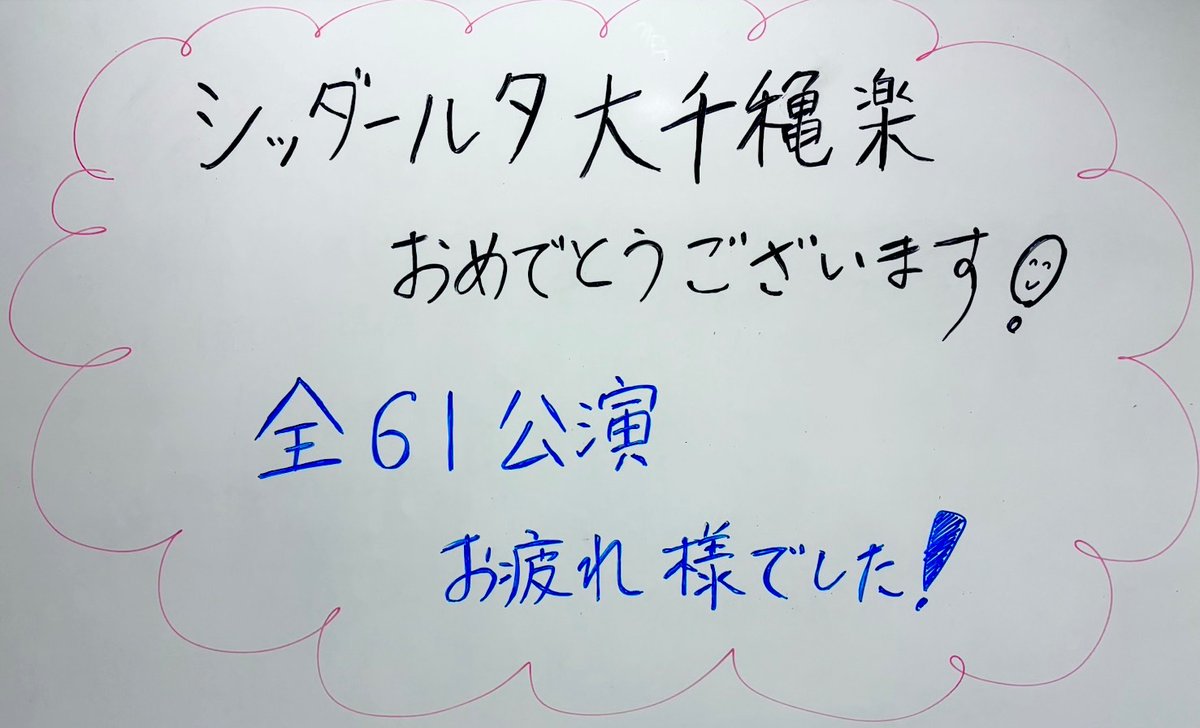 シッダールタ大千穐楽
おめでとうございます!
全61公演
お疲れ様でした!